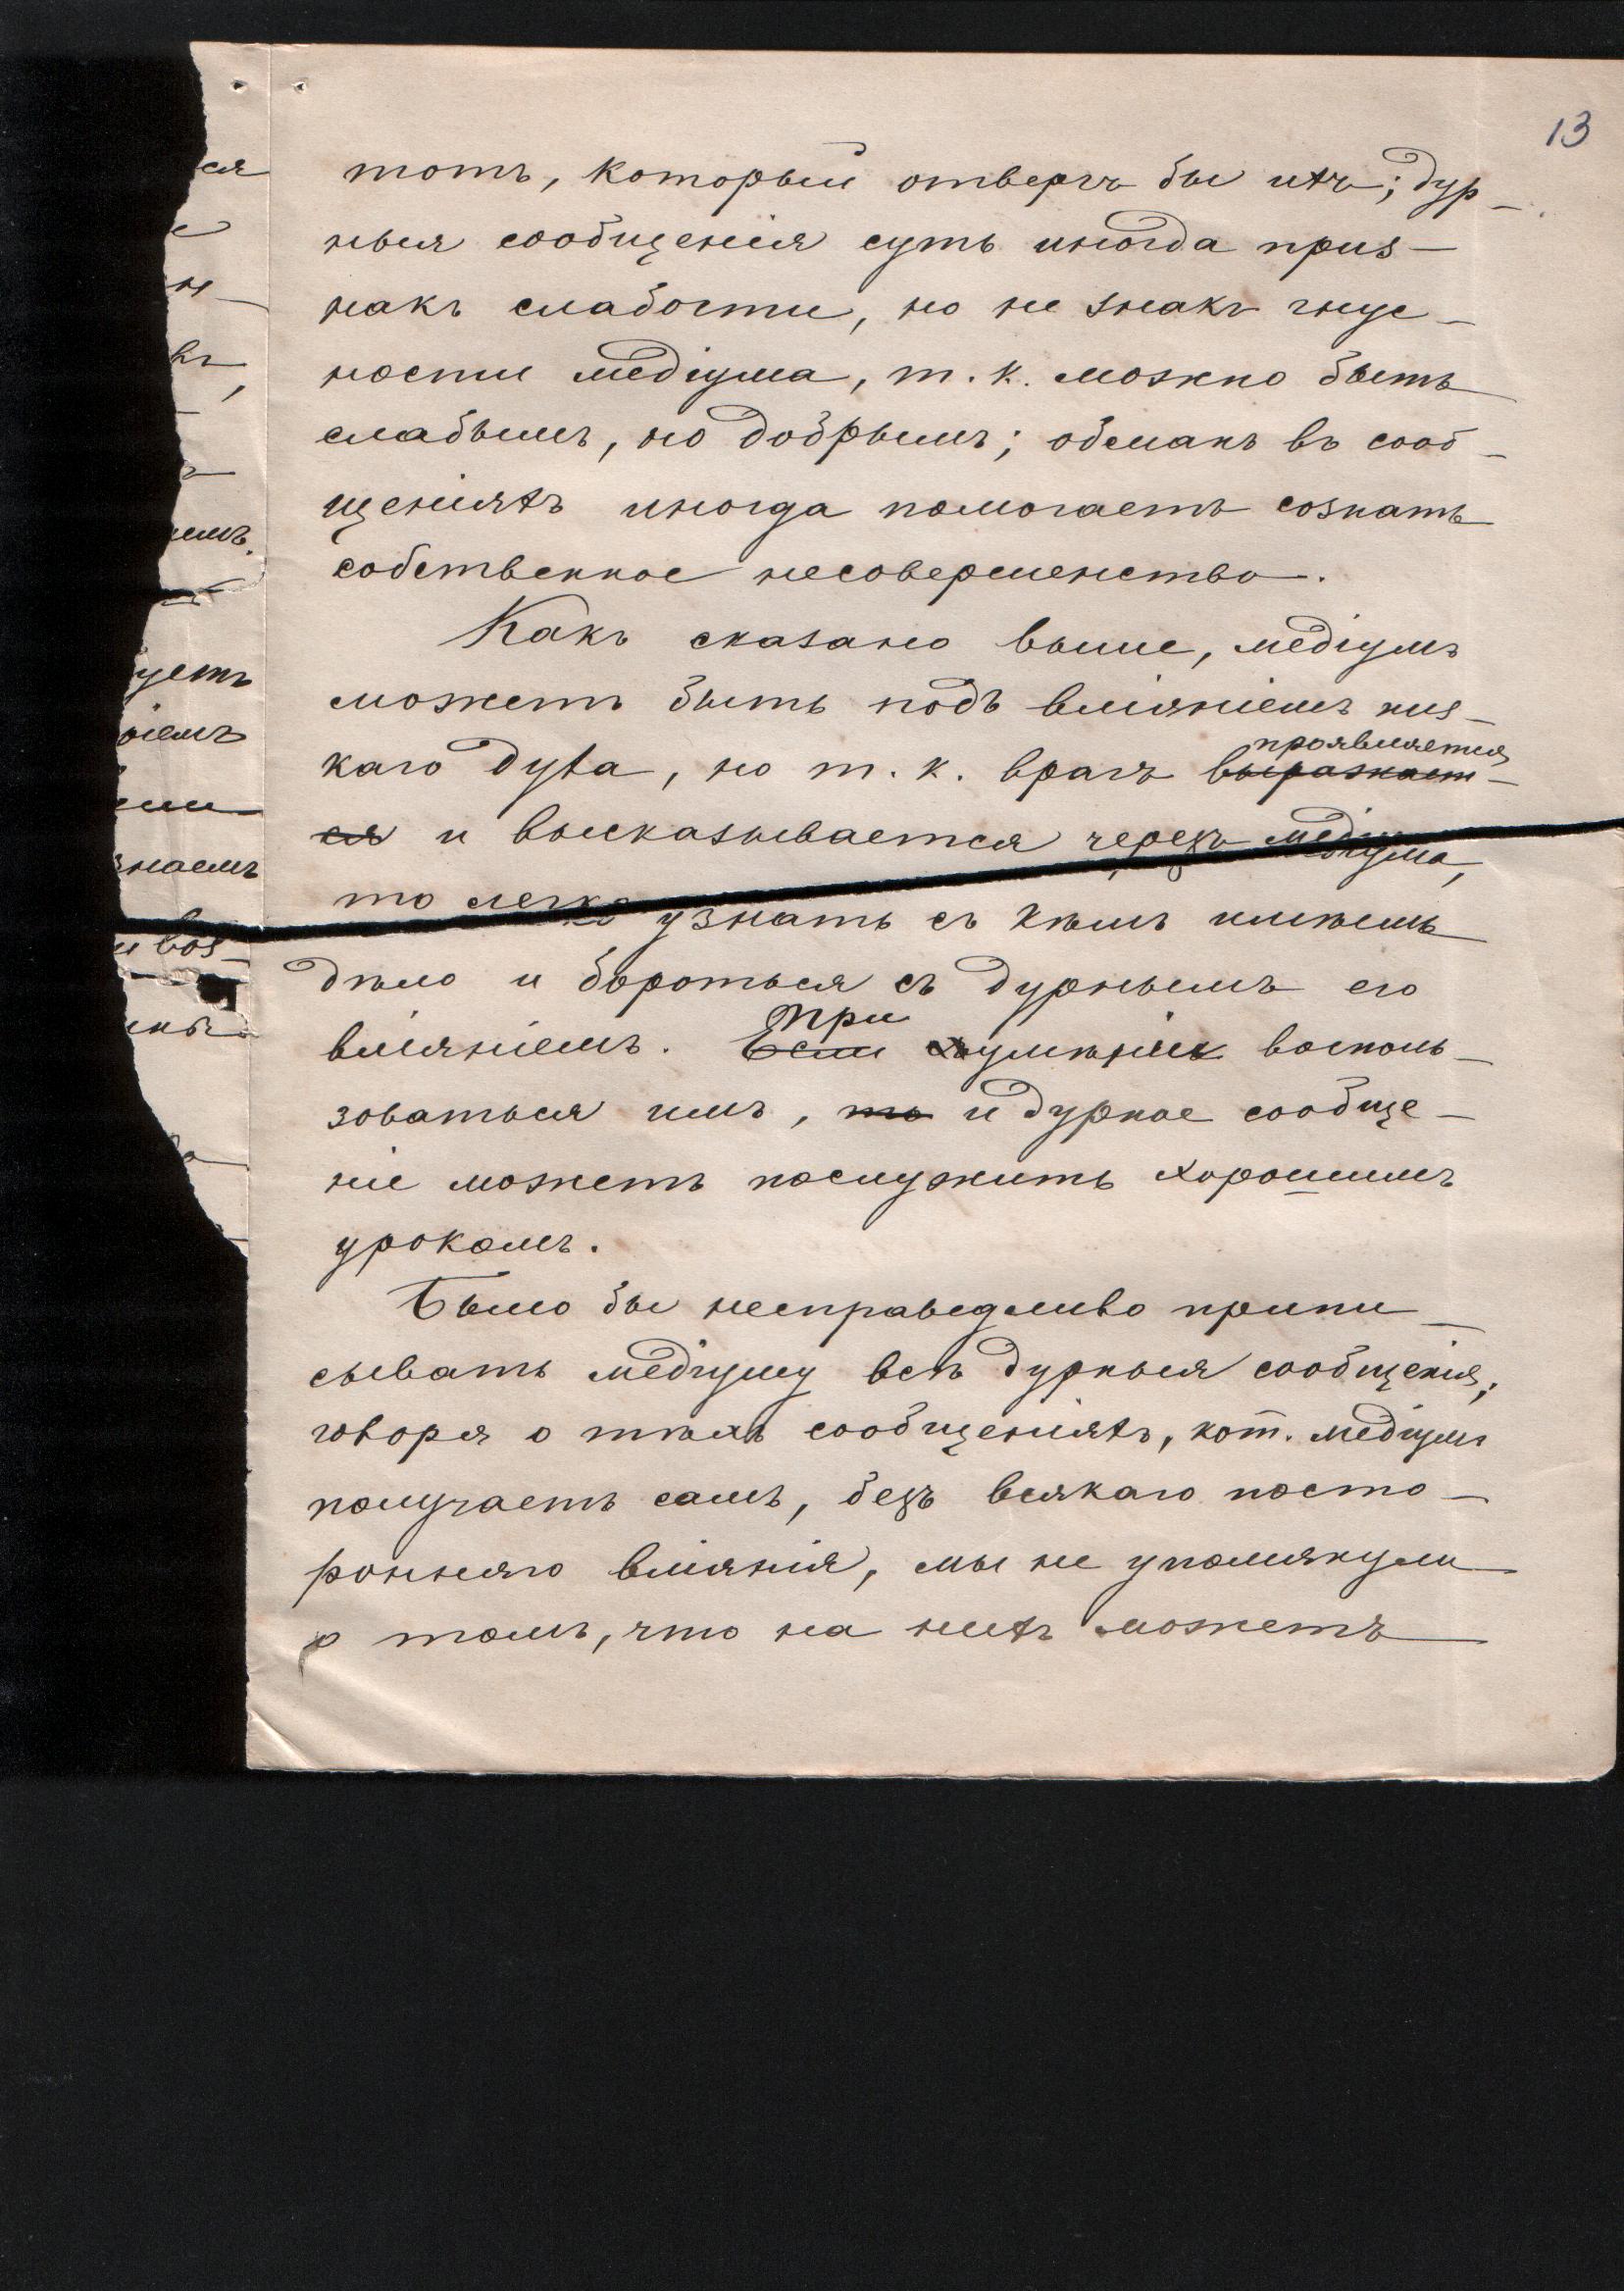 13
тотъ, который отвергъ бы ихъ; дур-
ныя сообщенія суть иногда приз-
накъ слабости, но не знакъ гнус-
ности медіума, т. к. можно быть
слабымъ, но добрымъ; обманъ въ сооб-
щеніяхъ иногда помогаетъ сознать
собственное несовершенство.
Какъ сказано выше, медіумъ
можетъ быть подъ вліяніемъ низ-
проявляется
каго духа, но т. к. врагъ выражает-
ся и высказывается черезъ медіума,
то легко узнать съ кѣмъ имѣешь
дѣло и бороться съ дурнымъ его
При
вліяніемъ. Если умѣніи восполь-
зоваться имъ, то и дурное сообще-
ніе можетъ послужить хорошимъ
урокомъ.
Было бы несправедливо припи-
сывать медіуму всѣ дурныя сообщенія;
говоря о тѣхъ сообщеніяхъ, кот. медіумъ
получаетъ самъ, безъ всякаго посто-
ронняго вліянія, мы не упомянули
о томъ, что на нихъ можетъ